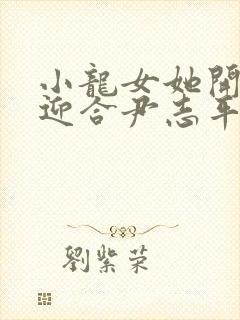 小龍女她開
迎合尹志平
劉紫榮